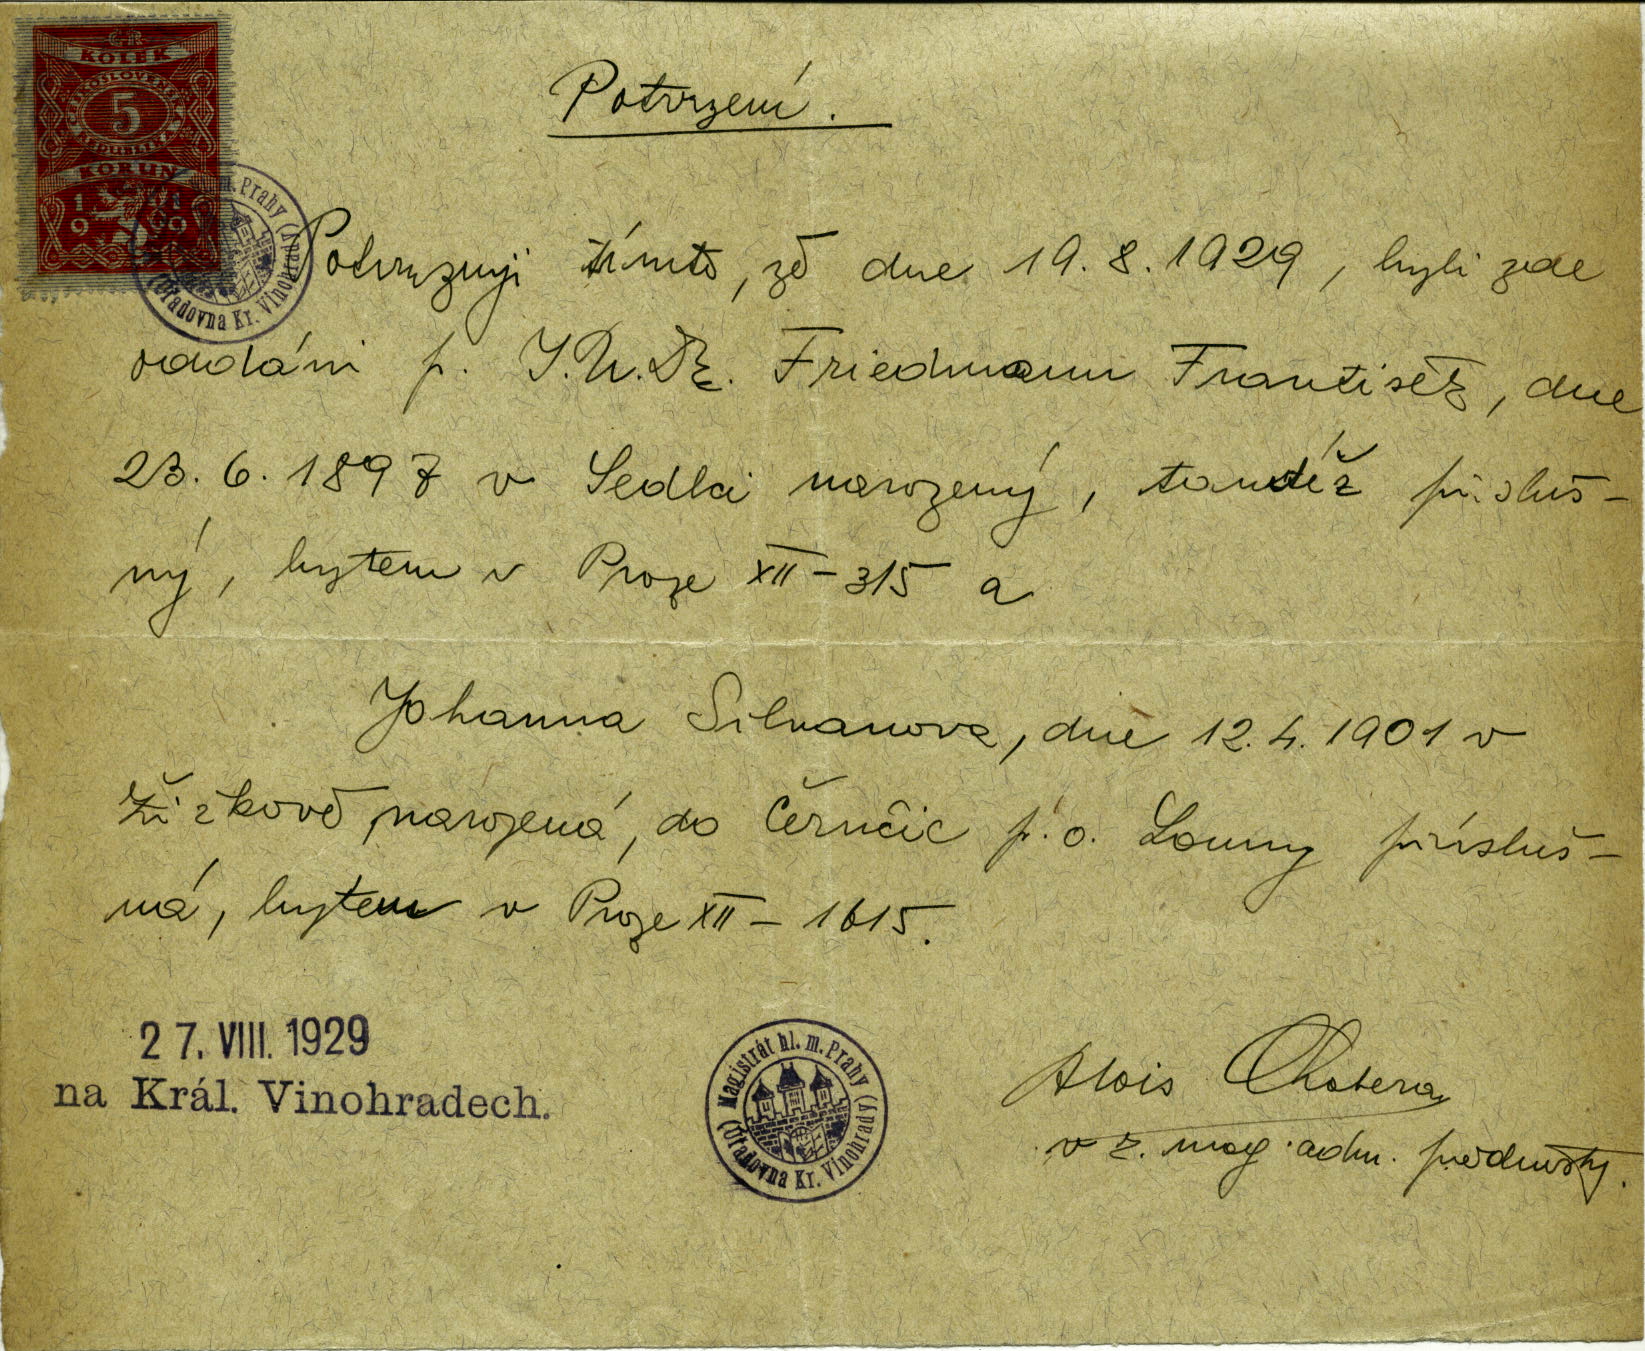 ČR
KOLEK
ČESKOSLOVENSKÁ
5
REPUBLIKA
KORUN
1919
m. Prahy
(Úřadovna Kr. Vinohrady)
Potvrzení.
Potvrzuji tímto, že dne 19. 8. 1929, byli zde
oddáni p. J.U.Dr. Friedmann František, dne
23. 6. 1897 v Sedlci narozený, tamtéž přísluš-
ný, bytem v Praze XII – 315 a
Johanna Silvanova, dne 12. 4. 1901 v
Žižkově narozená, do Černčic p. o. Louny přísluš-
ná, bytem v Praze XII – 1615.
27. VIII. 1929
na Král. Vinohradech.
Magistrát hl. m. Prahy
(Úřadovna Kr. Vinohrady)
Alois
v z. mag. adm. přednosty.